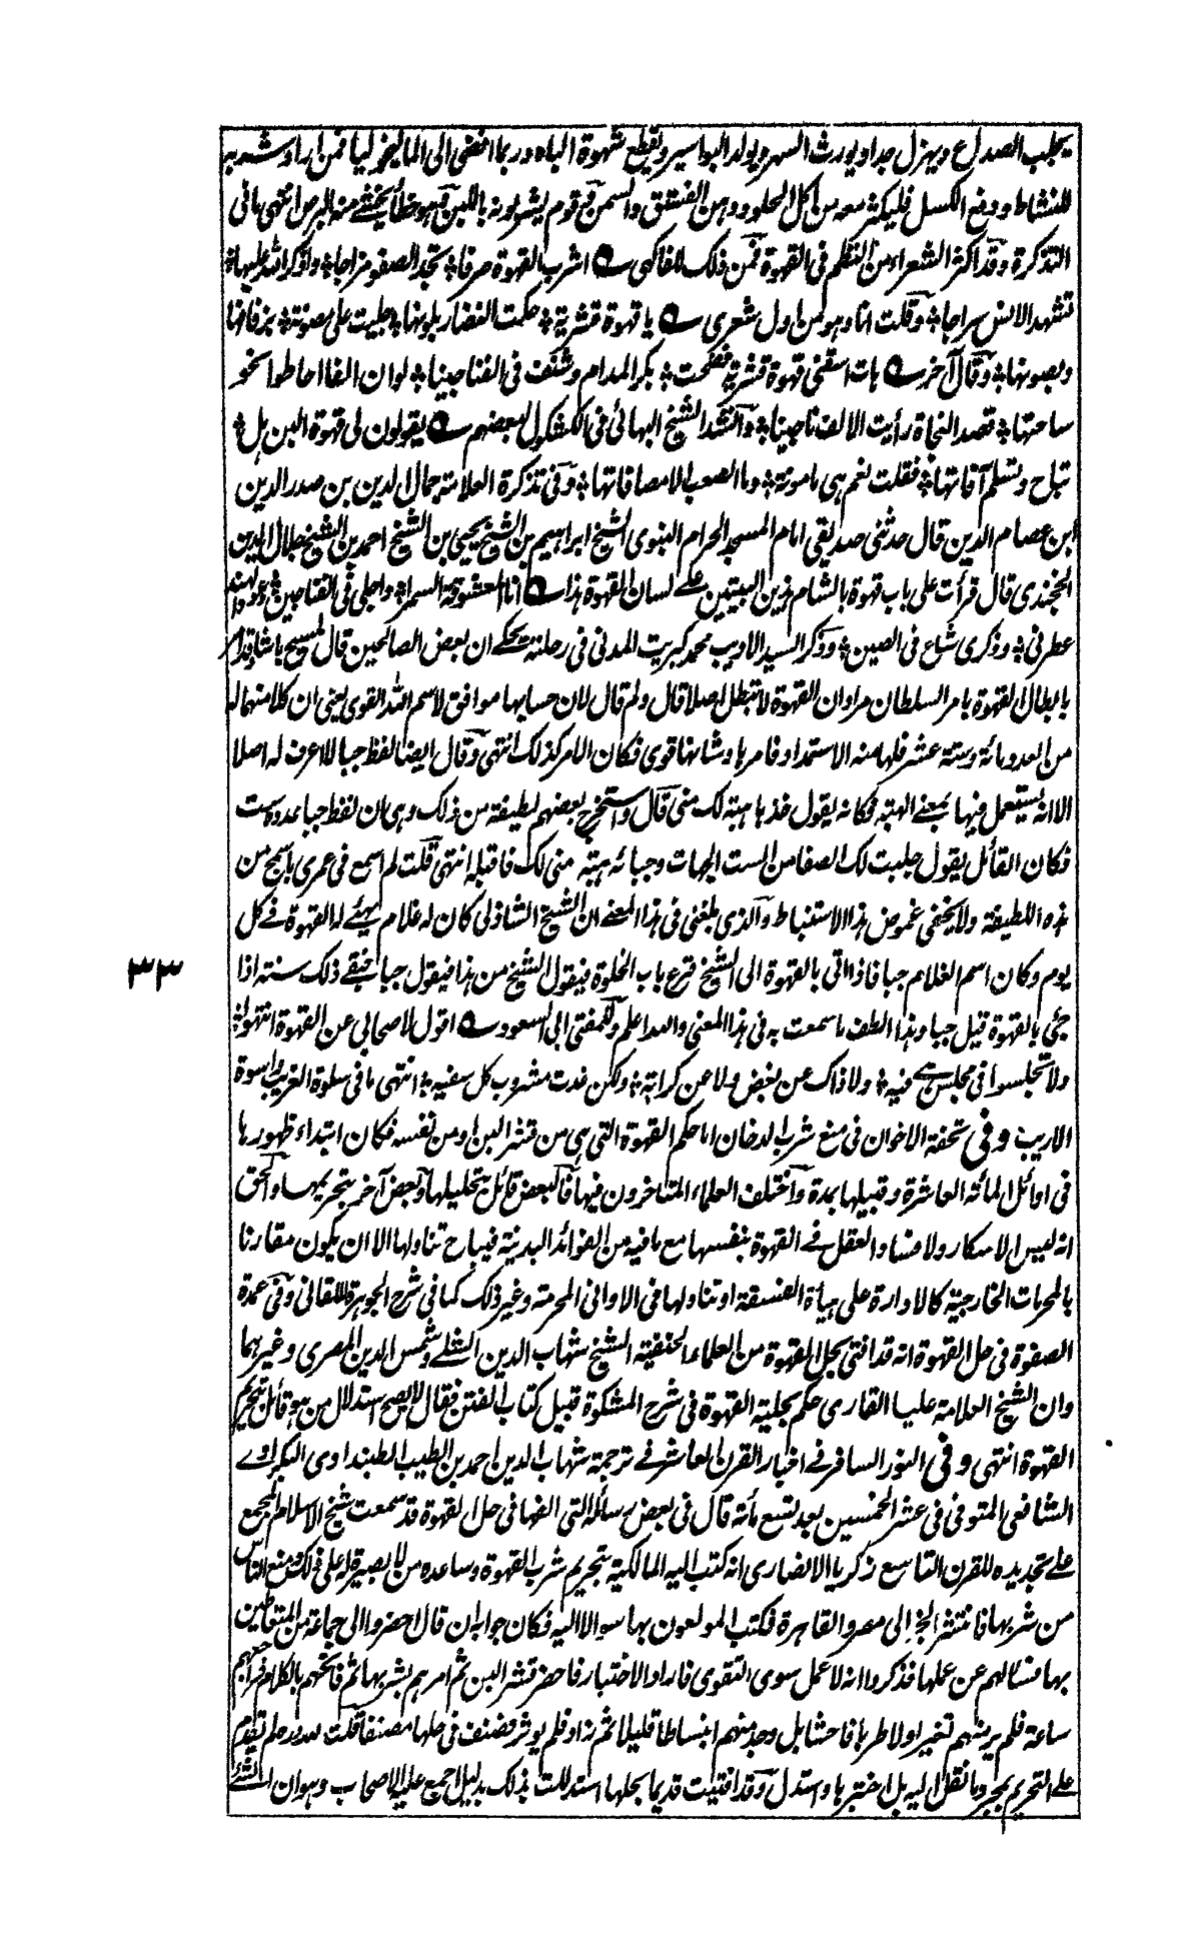 يجلب الصداع ويهزل جدا ويورث السهر ويولد البواسير ويقطع شهوة الباه وربما افضى الى الماليخوليا فمن اراد شربه
للنشاط ودفع الكسل فليكثر معه من اكل الحلو ودهن الفستق والسمن وقوم يشربونه باللبن وهو خطأ يخشى منه البرص انتهى ما فى
التذكرة وقد اكثر الشعراء من النظم فى القهوة فمن ذلك للفاكهى اشرب القهوة صرفا تجد الصفو مزاجا واذكر الله عليها
تشهد الانس سراجا وقلت انا وهو من اول شعرى يا قهوة قشرية حكت النضار بلونها جليت على مصونة بزفافها
وبصونها وقال آخر هات اسقنى قهوة قشرية فضحت بكر المدام وشنف فى الفناجينا لو ان الفا احاطوا نحو
ساحتها قصد النجاة رأيت الالف ناجينا وانشد الشيخ البهائى فى الكشكول لبعضهم يقولون لى قهوة البن هل
تباح وتسلم آفاتها فقلت نعم هى مامونة وما الصعب الا مصافاتها وفى تذكرة العلامة جمال الدين بن صدر الدين
ابن عصام الدين قال حدثنى صديقى امام المسجد الحرام النبوى الشيخ ابراهيم بن الشيخ يحيى بن الشيخ احمد بن الشيخ جلال الدين
الخجندى قال قرأت على باب قهوة بالشام هذين البيتين على لسان القهوة هذا انا المعشوقة السمرا واجلى فى الفناجين وعود الهند
عطرنى وذكرى شاع فى الصين وذكر السيد الاديب محمد كبريت المدنى فى رحلته يحكى ان بعض الصالحين قال لمسيح باشا
بابطال القهوة بامر السلطان مراد ان القهوة لا تبطل اصلا قال ولم قال لان حسابها موافق لاسم الله القوى يعنى ان كلا منهما له
من العدد مائة وستة عشر فلها منه الاستمداد فامرها وشانها قوى فكان الامر كذلك انتهى وقال ايضا لفظ جبا لا اعرف له اصلا
الا انه يستعمل فيها بمعنى الهبة فكانه يقول خذها هبة لك منى قال واستخرج بعضهم لطيفة من ذلك وهى ان لفظ جبا عدده ست
فكان القائل يقول جلبت لك الصفا من الست الجهات وجبائه هبة منى لك فاقبله انتهى قلت لم اسمع فى عمرى باسمج من
هذه اللطيفة ولا يخفى غموض هذا الاستنباط والذى بلغنى فى هذا المعنى ان الشيخ الشاذلى كان له غلام يهيئ له القهوة فى كل
يوم وكان اسم الغلام جبا فاذا اتى بالقهوة الى الشيخ قرع باب الخلوة فيقول الشيخ من هذا فيقول جبا فبقى ذلك سنة اذا
جئ بالقهوة قيل جبا وهذا الطف ما سمعت به فى هذا المعنى والله اعلم وللمفتى ابى السعود اقول لاصحابى عن القهوة انتهوا
ولا تجلسوا فى مجلس هى فيه ولا ذاك عن بغض ولا عن كراهة ولكن غدت مشروب كل سفيه انتهى ما فى سلوة الغريب واسوة
الاريب وفى تحفة الاخوان فى منع شرب الدخان اما حكم القهوة التى هى من قشر البن او من نفسه فكان ابتداء ظهورها
فى اوائل المائة العاشرة وقبيلها بمدة واختلف العلماء المتاخرون فيها فالبعض قائل بتحليلها وبعض آخر بتحريمها والحق
انه ليس الاسكار ولا فساد العقل فى القهوة بنفسها مع ما فيه من الفوائد البدنية فيباح تناولها الا ان يكون مقارنا
بالمحرمات الخارجية كالادارة على هيأة الفسقة او تناولها فى الاوانى المحرمة وغير ذلك كما فى شرح الجوهرة للقانى وفى عمدة
الصفوة فى حل القهوة انه قد افتى بحل القهوة من العلماء الحنفية الشيخ شهاب الدين الشلى وشمس الدين المصرى وغيرهما
وان الشيخ العلامة عليا القارى حكم بحلية القهوة فى شرح المشكوة قبيل كتاب الفتن فقال لا يصح استدلال من هو قائل بتحريم
القهوة انتهى وفى النور السافر فى اخبار القرن العاشر فى ترجمة شهاب الدين احمد بن الطيب الطبنداوى البكراوى
الشافعى المتوفى فى عشر الخمسين بعد تسع مأته قال فى بعض رسائله التى الفها فى حل القهوة قد سمعت شيخ الاسلام المجمع
على تجديده للقرن التاسع زكريا الانصارى انه كتب اليه المالكية بتحريم شرب القهوة وساعده من لا بصيرة له على ذلك ومنع الناس
من شربها فانتشر الخبر الى مصر والقاهرة فكتب المولعون بها سؤالا اليه فكان جوابه ان قال احضروا الى جماعة من المتعاطين
بها فسالهم عن عملها فذكروا انه لا عمل سوى التقوى فاراد الاختبار فاحضر قشر البن ثم امرهم بشربها ثم فاتحهم بالكلام فراجعهم
ساعة فلم ير منهم تغيرا ولا طربا فاحشا بل وجد منهم انبساطا قليلا ثم زاد فلم يوثر فصنف فى حلها مصنفا قلت لله دره حلم تقدم
على التحريم بمجرد ما نقل اليه بل اختبرها واستدل وقد افتيت قديما بحلها استدللت بذلك بدليل اجمع عليه الاصحاب وهو ان الشئ
٣٣